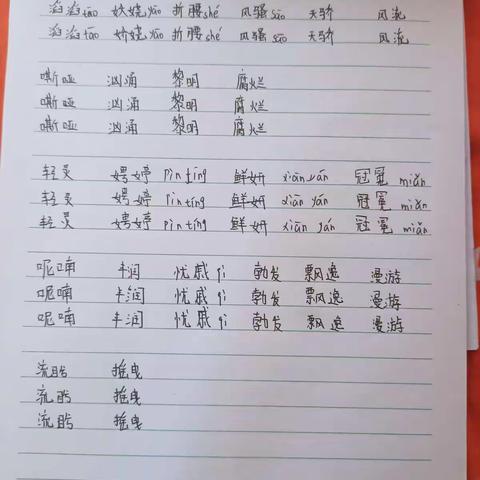 滔滔tāo 妖娆yāo 折腰shé 风骚sāo 天骄 风流
滔滔tāo 娇娆yáo 折腰shé 风骚sāo 天骄 风流
嘶哑 汹涌 黎明 腐烂
嘶哑 汹涌 黎明 腐烂
嘶哑 汹涌 黎明 腐烂
轻灵 娉婷pīn tíng 鲜妍xiān yán 冠冕miǎn
轻灵 娉婷pīn tíng 鲜妍xiān yán 冠冕miǎn
轻灵 娉婷pīn tíng 鲜妍xiān yán 冠冕miǎn
呢喃 丰润 忧戚qī 勃发 飘逸 漫游
呢喃 丰润 忧戚qī 勃发 飘逸 漫游
呢喃 丰润 忧戚qī 勃发 飘逸 漫游
流盼 摇曳
流盼 摇曳
流盼 摇曳